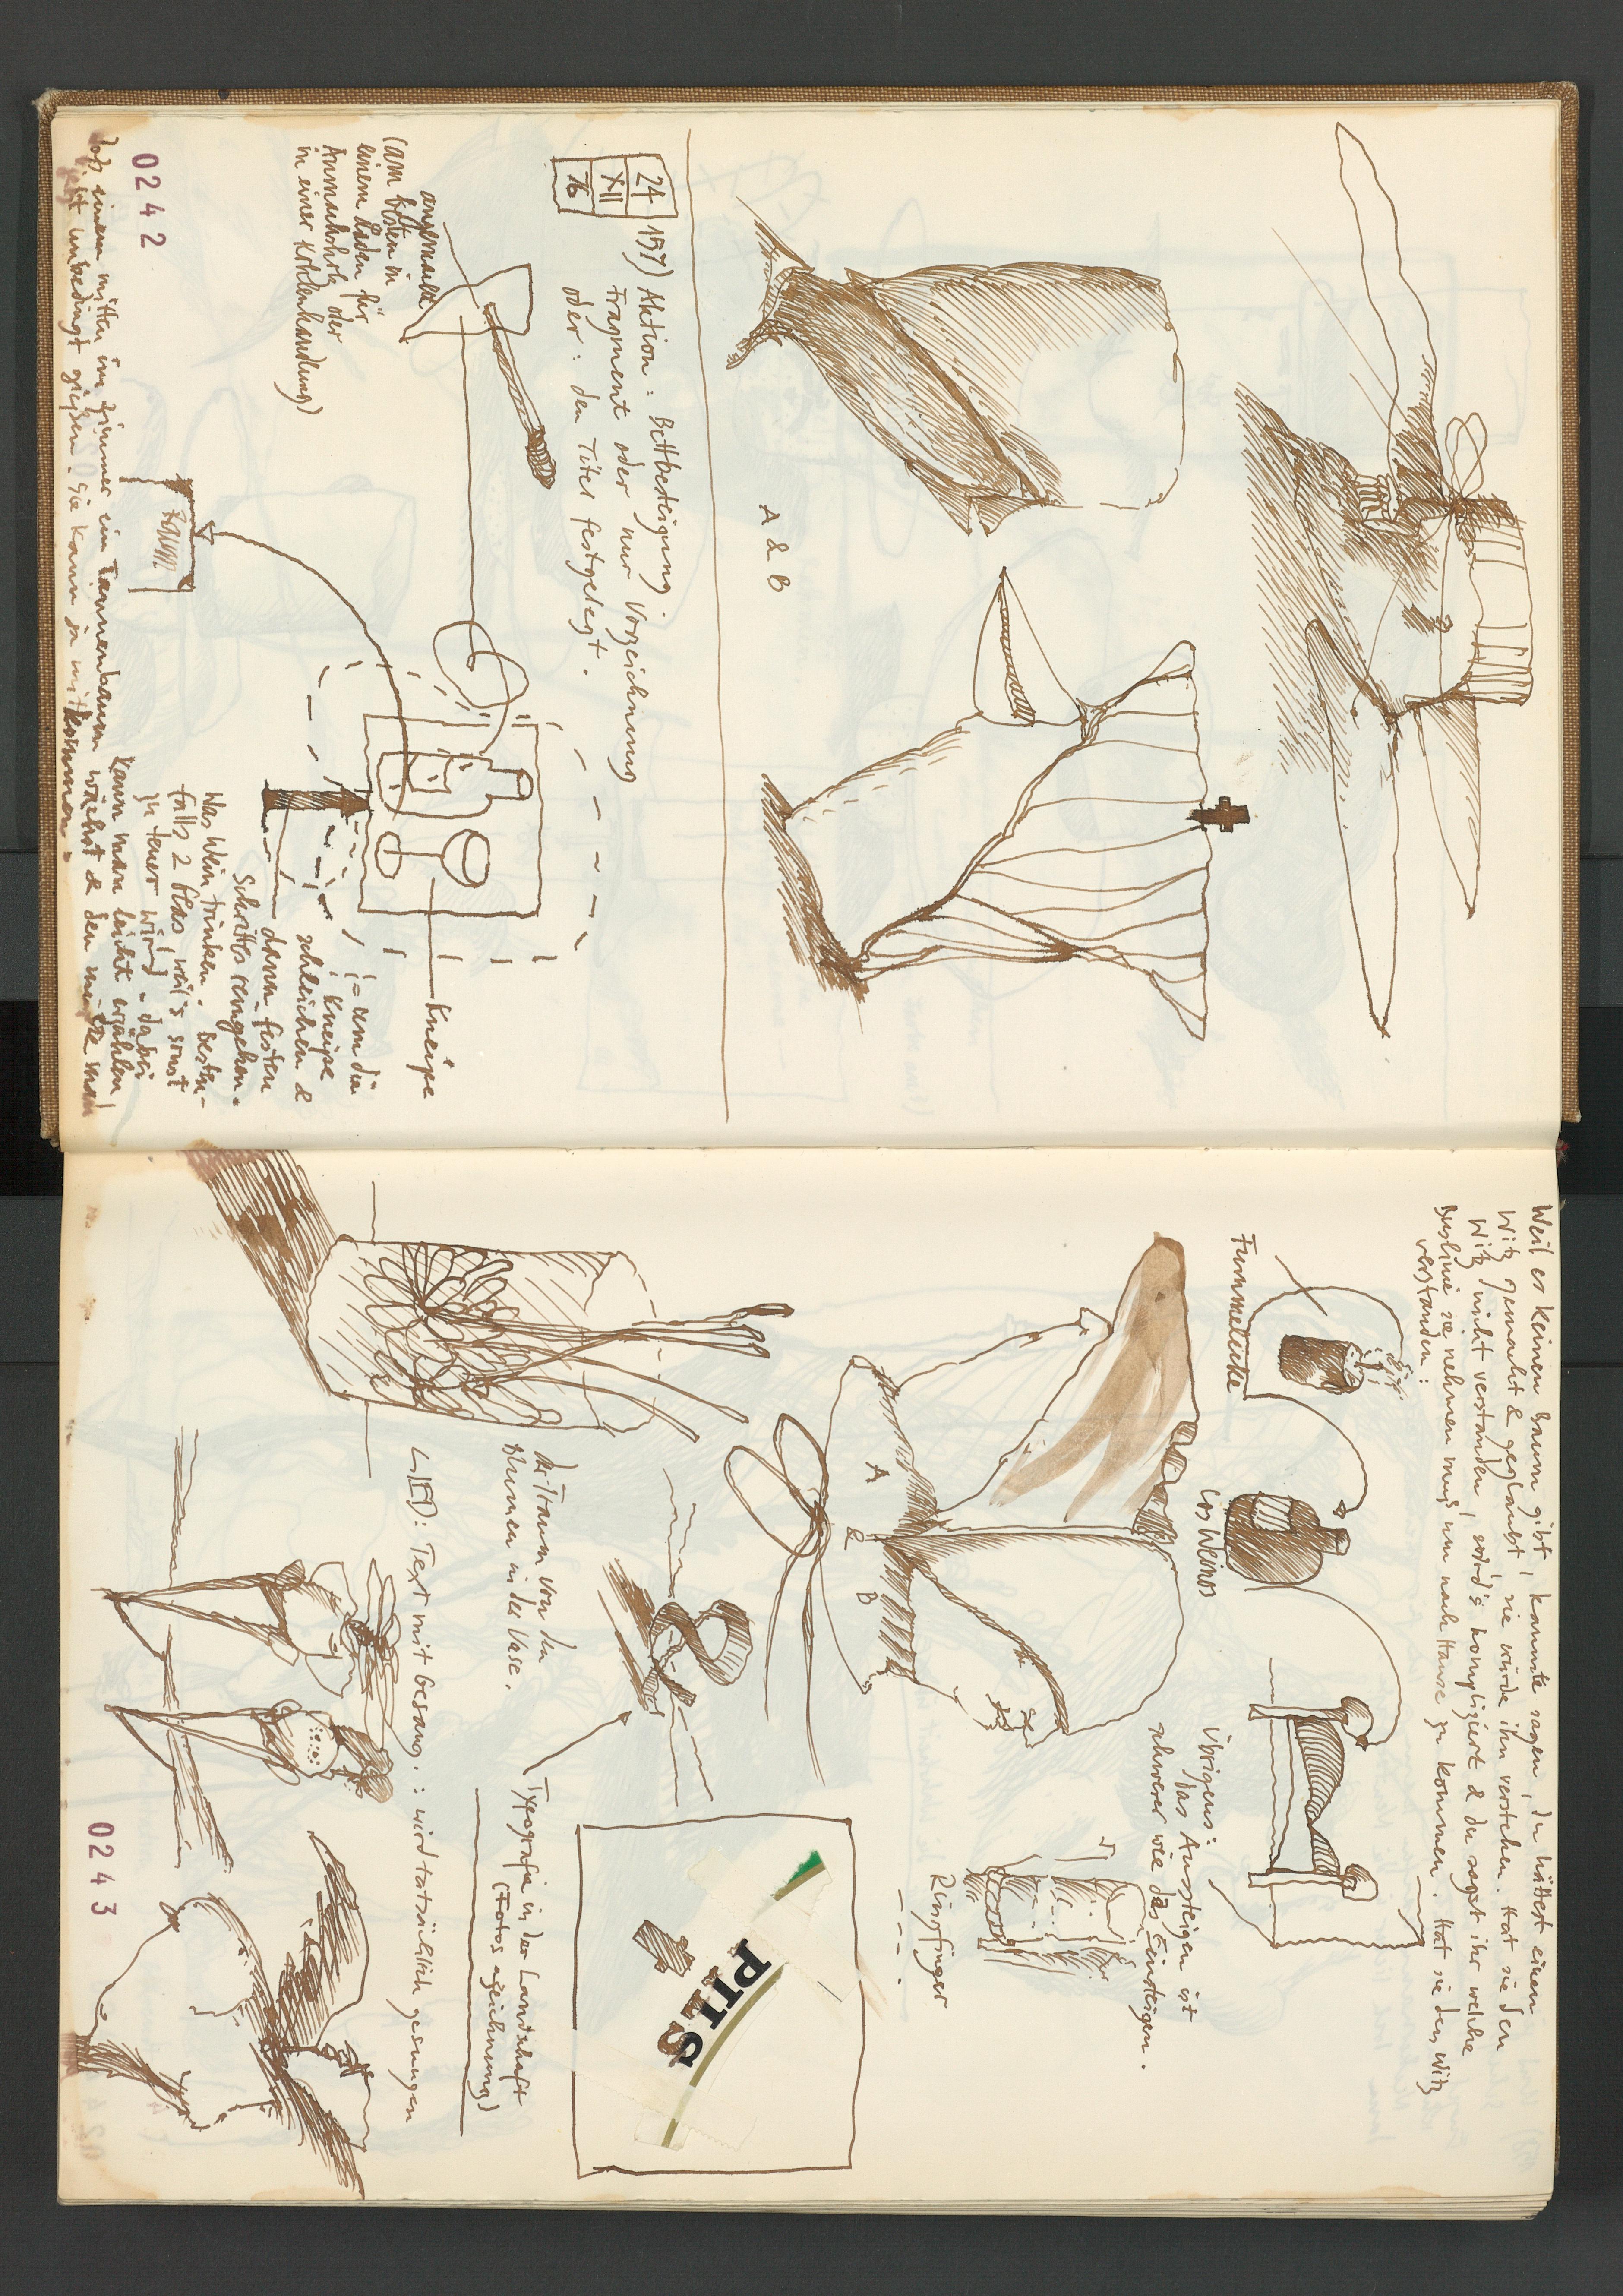 A & B
24
XII
76
157) Aktion: Bettbesteigung.
Fragment oder nur Vorzeichnung
oder: den Titel festgelegt.
angemalt
(am besten in
einem Laden für
Anmachholz oder
in einer Kohlenhandlung)
Kneipe
um die
Kneipe
schleichen &
dann festen
Schrittes reingehen.
Was Wein trinken. Besten-
falls 2 Glas, weil's sonst
zu teuer wird. Dabei
kann man leicht erzählen,
daß einem mitten im Zimmer ein Tannenbaum wächst & den müßte man
jetzt unbedingt gießen. Sie kann ja mitkommen.
0242
Weil es keinen Baum gibt, kannste sagen, du hättest einen
Witz gemacht & geglaubt, sie würde ihn verstehen. Hat sie den
Witz nicht verstanden, wird's kompliziert & du sagst ihr welche
Buslinie sie nehmen muß um nach Hause zu kommen. Hat sie den Witz
verstanden:
Fummelecke
Los Weinos
Übrigens:
Das Aussteigen ist
schwerer wie das Einsteigen.
A & B
Ringfinger
PILS
Der Traum von den
Blumen in der Vase.
Typografie in der Landschaft
(Fotos & Zeichnung)
LIED: Text mit Gesang.: wird tatsächlich gesungen
0243